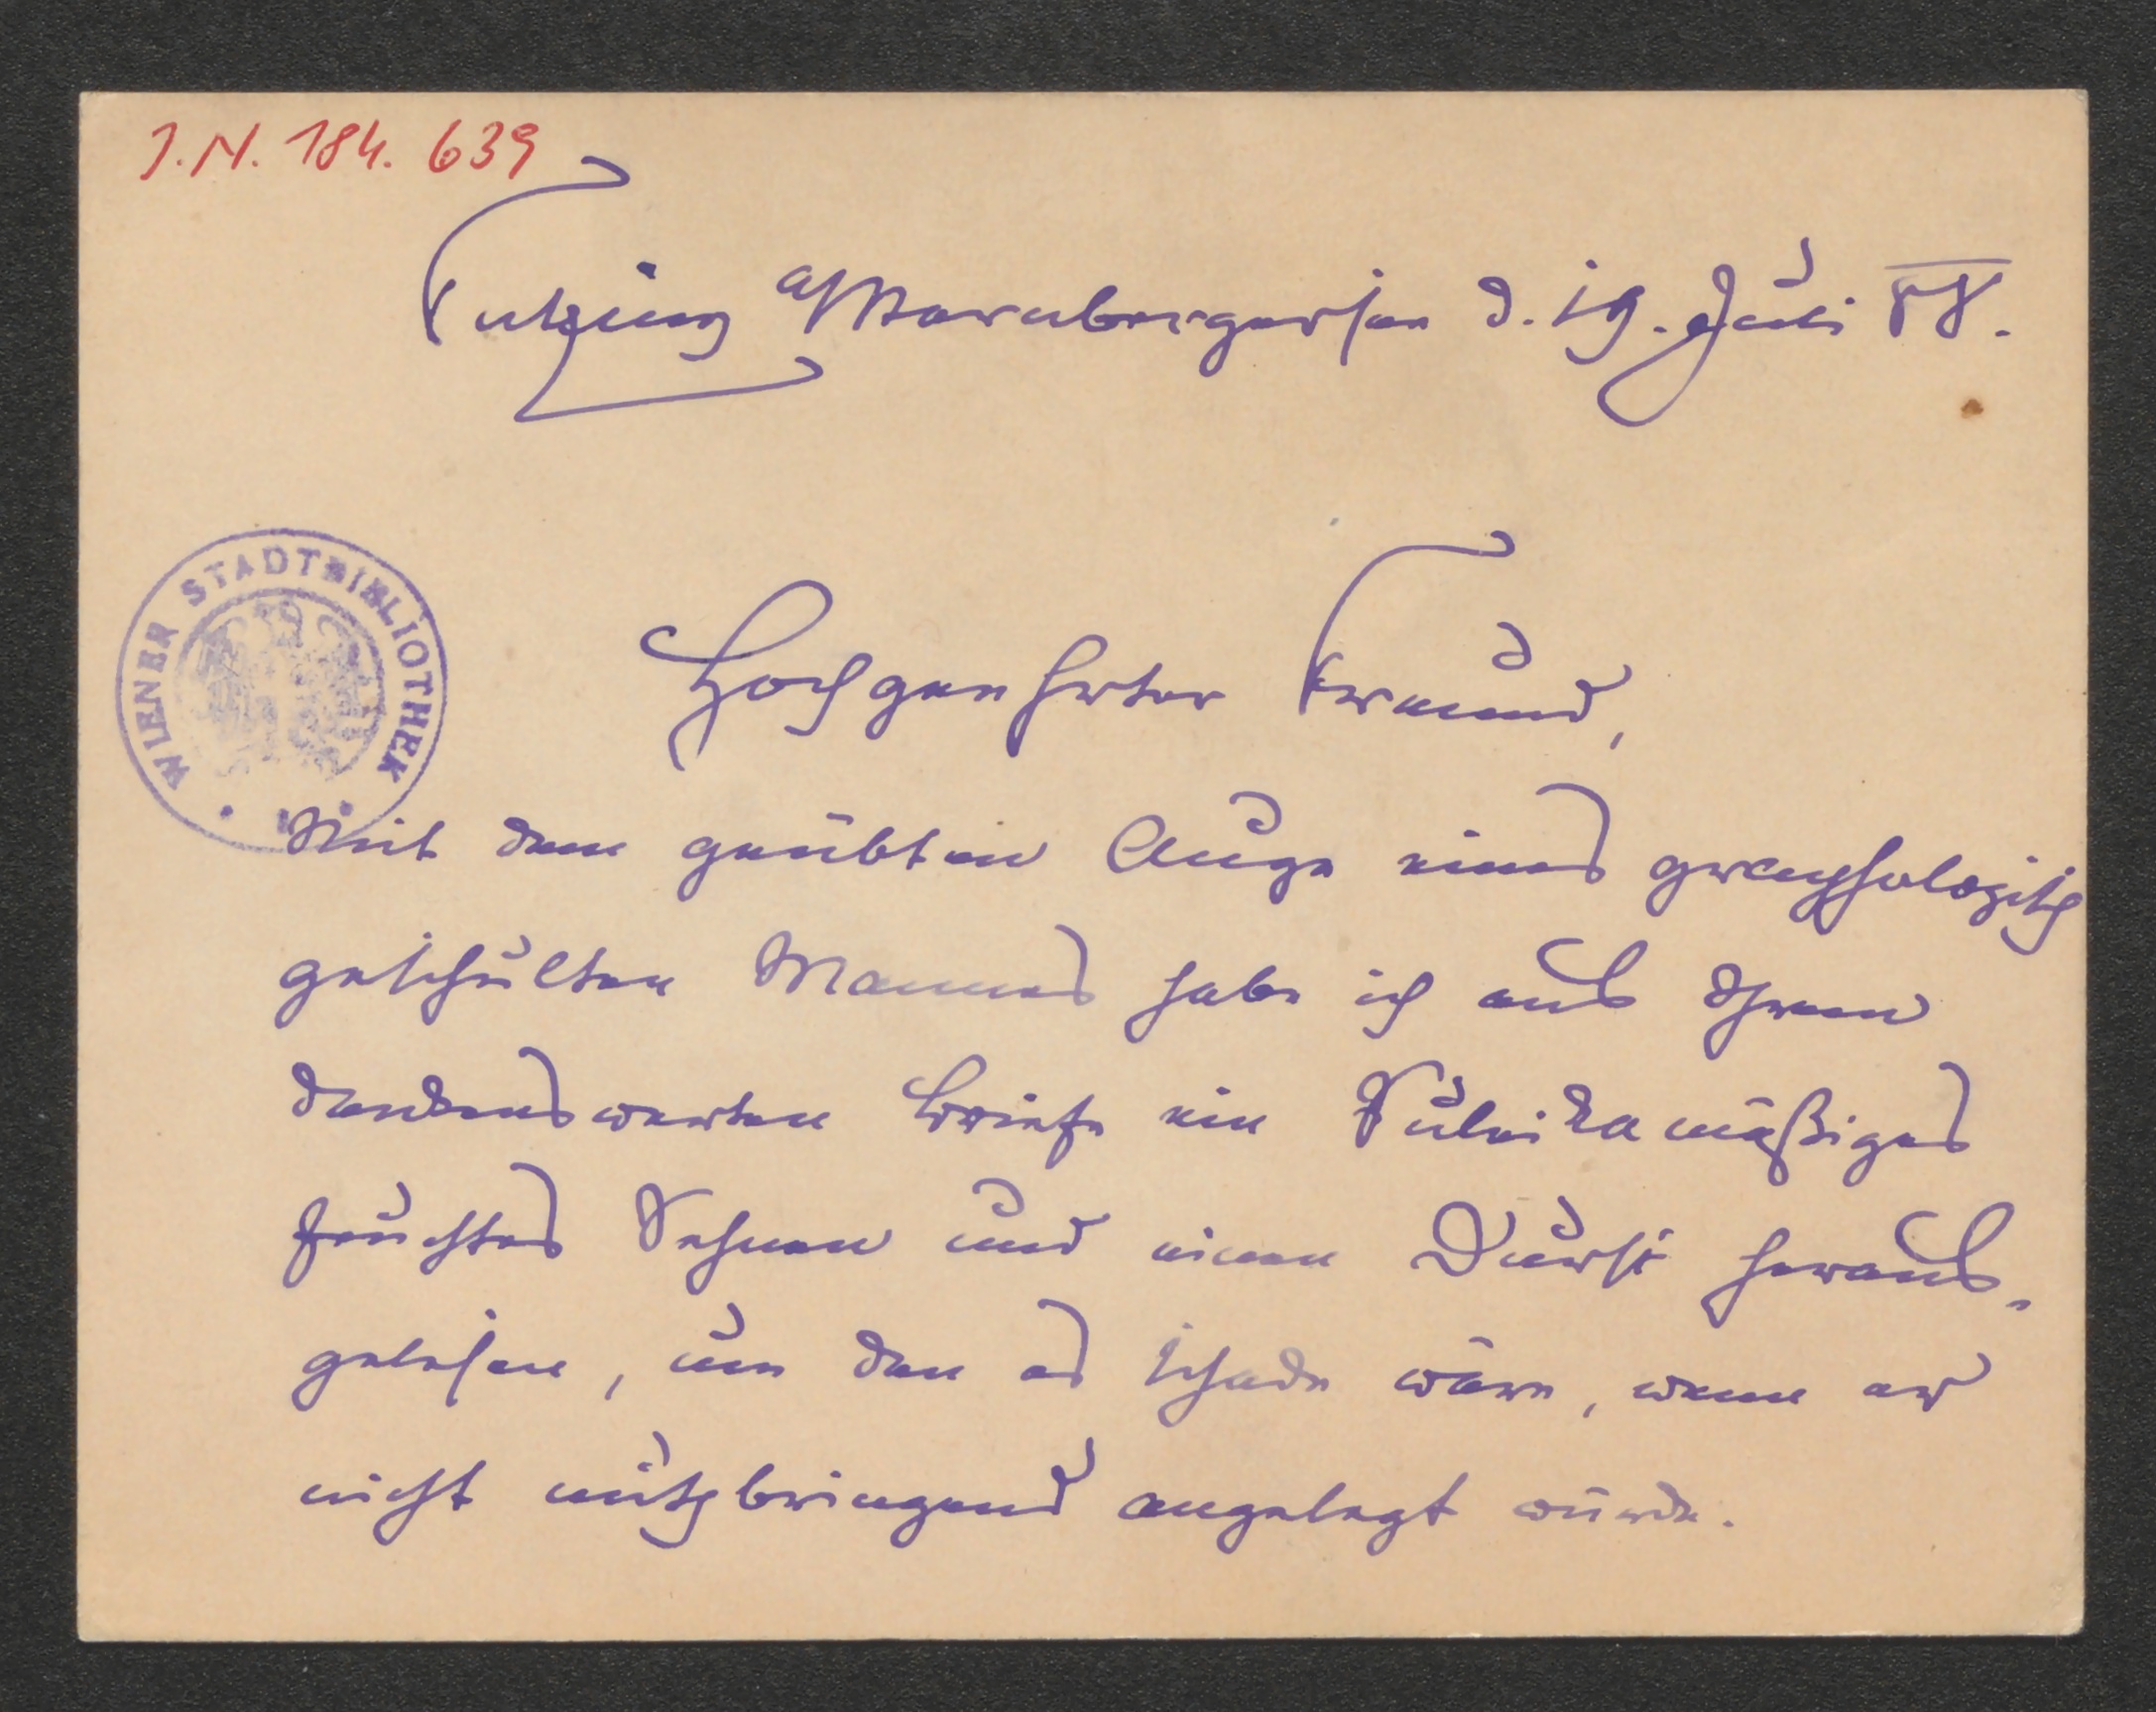 J.N. 184.639
Tutzing a/Starnbergersee d. 19. Juli 88.
WIENER STADTBIBLIOTHEK
Hochgeehrter Freund,
Mit dem geübten Auge eines graphologisch
geschulten Mannes habe ich aus Ihrem
dankenswerten Briefe ein Suleikamäßiges
feuchtes Sehnen und einen Durst heraus-
gelesen, um den es schade wäre, wenn er
nicht nutzbringend angelegt würde.